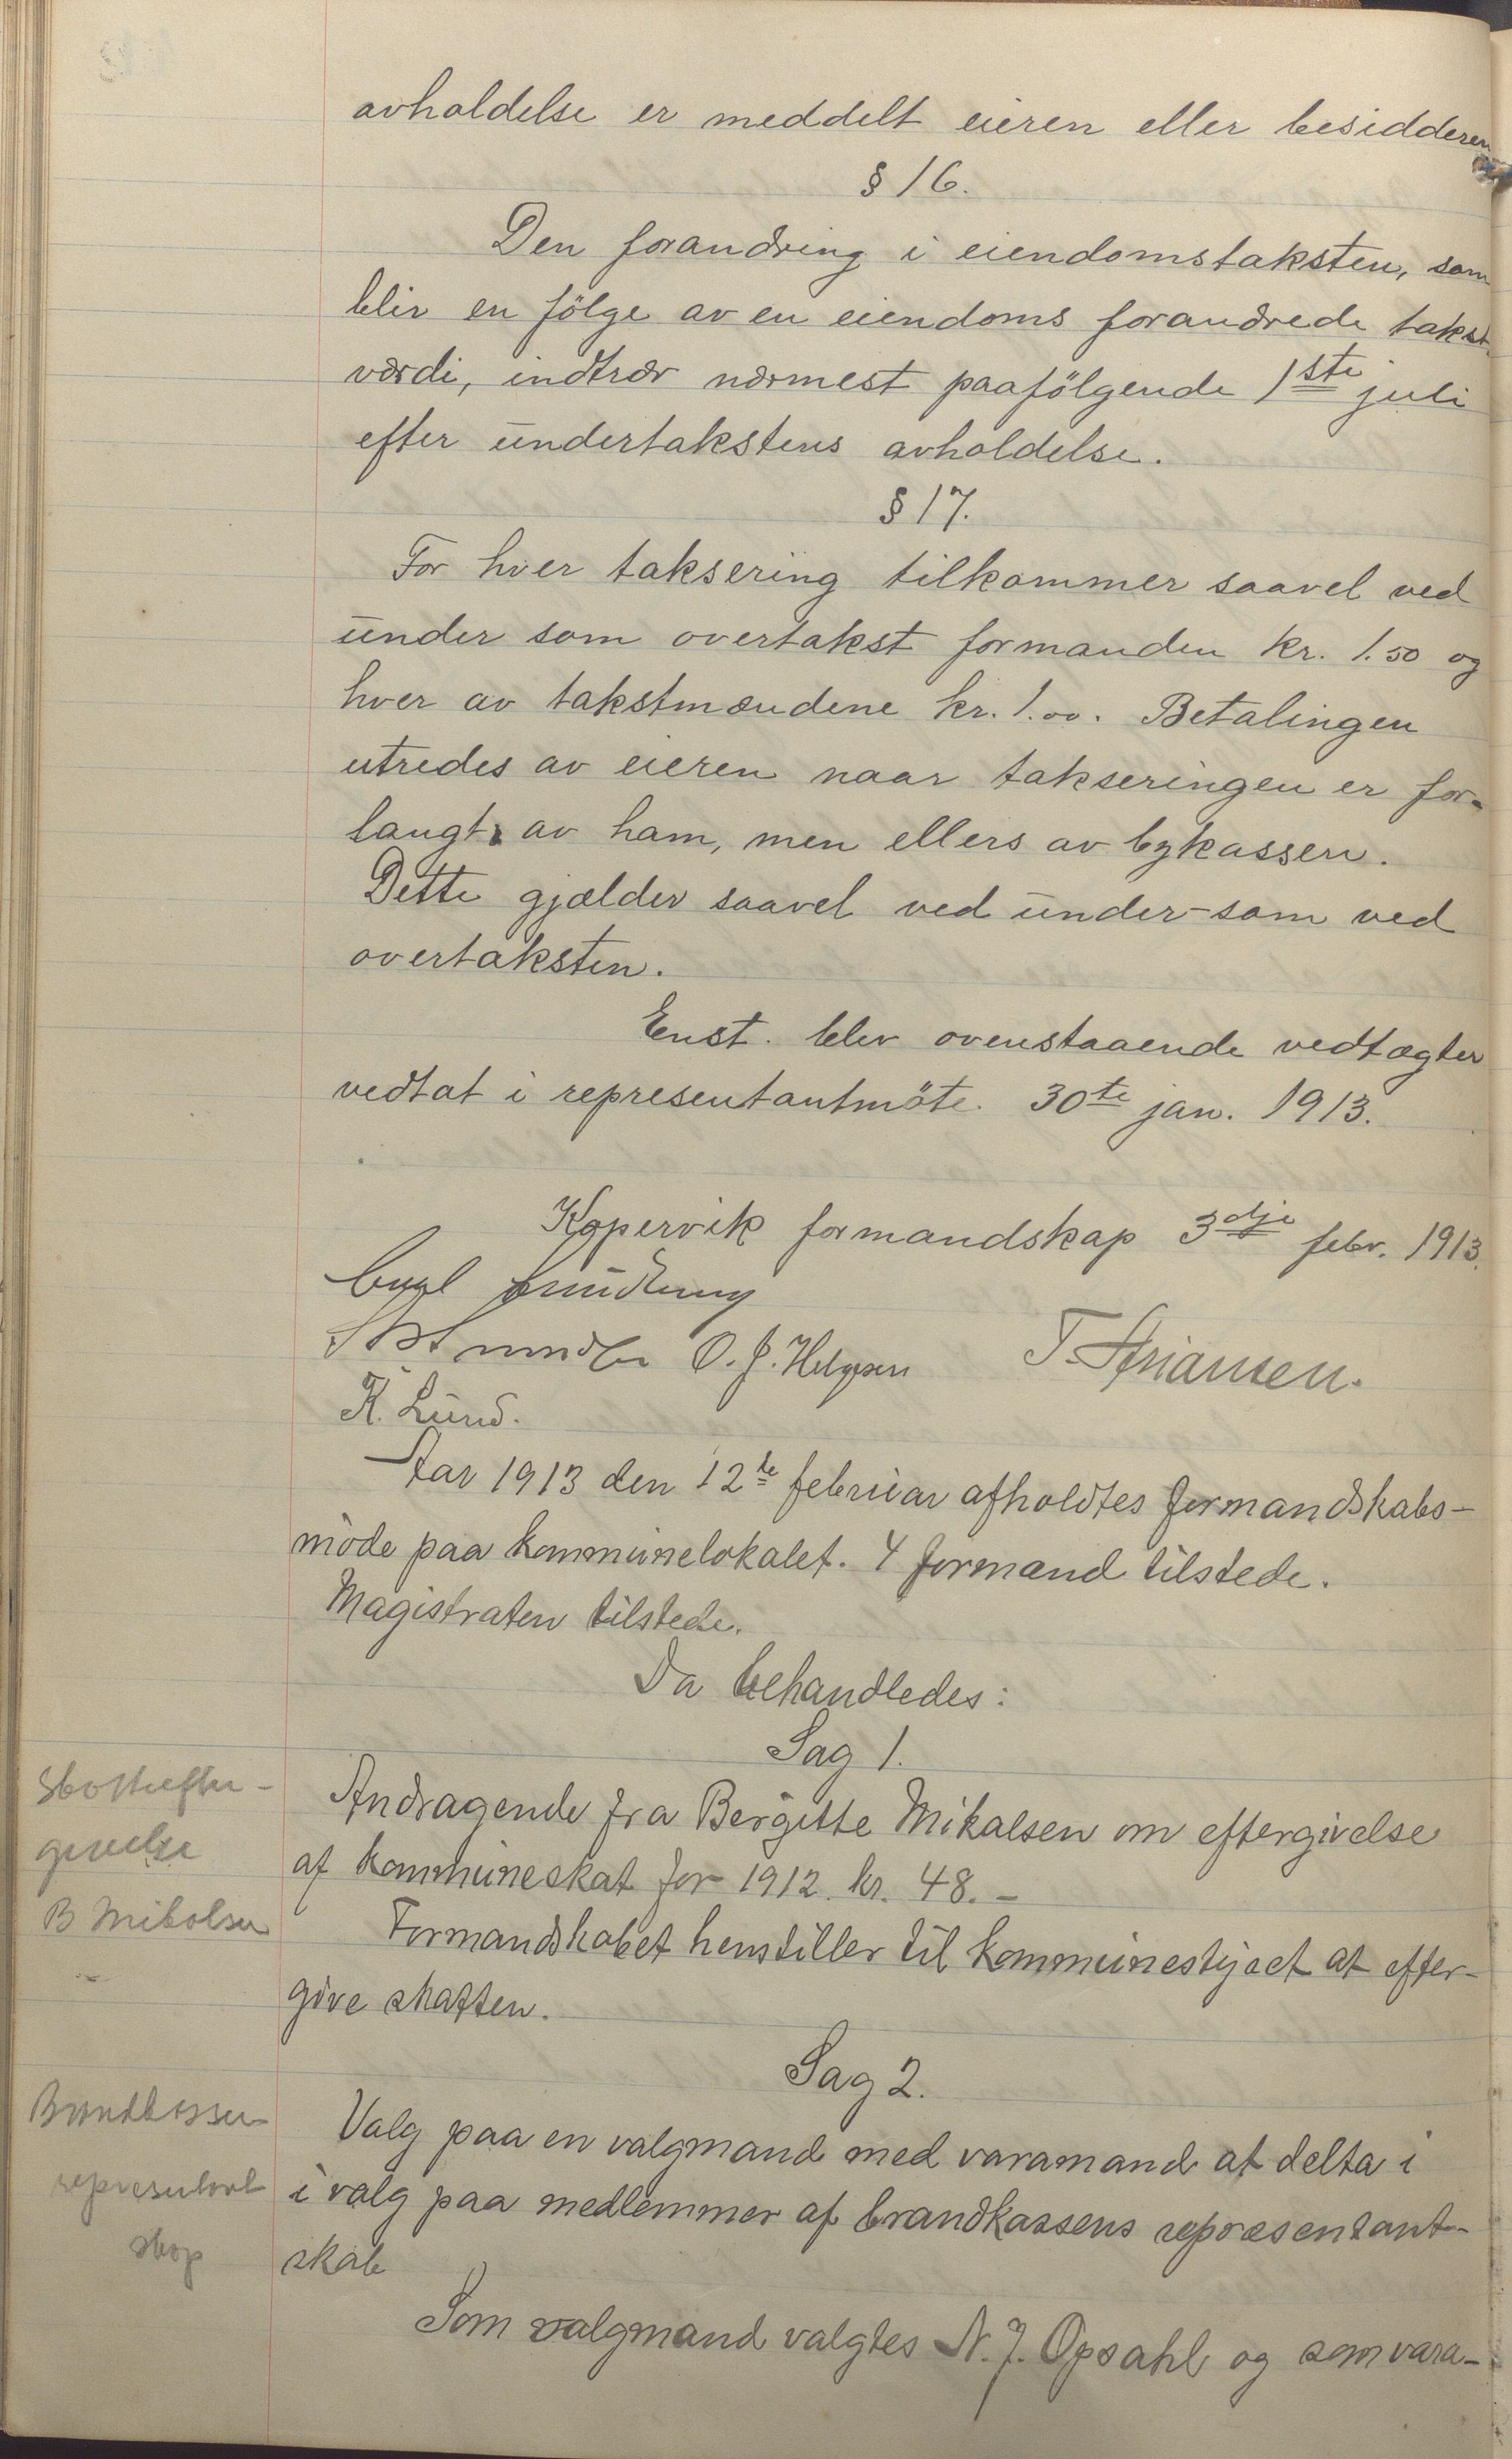 avholdelse er meddelt eieren eller besidderen
§ 16.
Den forandring i eiendomstaksten, som
blir en følge av en eiendoms forandrede takst-
værdi, indtrær nærmest paafølgende 1ste juli
efter undertakstens avholdelse.
§ 17.
For hver taksering tilkommer saavel ved
under som overtakst formanden kr. 1.50 og
hver av takstmændene kr. 1.00. Betalingen
utredes av eieren naar takseringen er for-
langt av ham, men ellers av bykassen.
Dette gjælder saavel ved under-som ved
overtaksten.
Enst. blev ovenstaaende vedtægter
vedtat i representantmöte 30te jan. 1913.
Kopervik formandskap 3dje febr. 1913.
O. J. Helgesen
K. Lund.
Aar 1913 den 12te februar afholdtes formandskabs-
møde paa kommunelokalet. 4 formænd tilstede.
Magistraten tilstede.
Da behandledes:
Sag 1.
Skatteefter-
givelse
B Mikalsen
Andragende fra Bergitte Mikalsen om eftergivelse
af kommuneskat for 1912 kr. 48.-
Formandskabet henstiller til kommunestyret at efter-
give skatten.
Sag 2.
Brandkassen
representant
skap
Valg paa en valgmand med varamand at delta i
i valg paa medlemmer af brandkassens repræsentant-
skab
Som valgmand valgtes N. J. Opsahl og som vara-